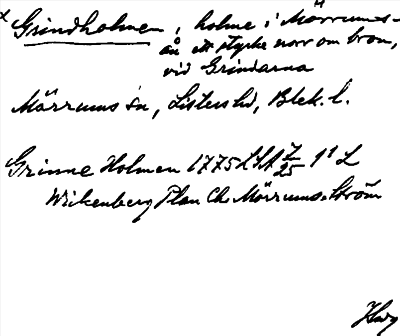 x Grindholmen, holme i Mörrums-
ån ett stycke norr om bron,
vid Grindarna
Mörrums sn, Listers hd, Blek. l.
Grinne Holmen 1775 LSA 7/25 1¹ L
Wickenberg Plan Ch. Mörrums-Ström